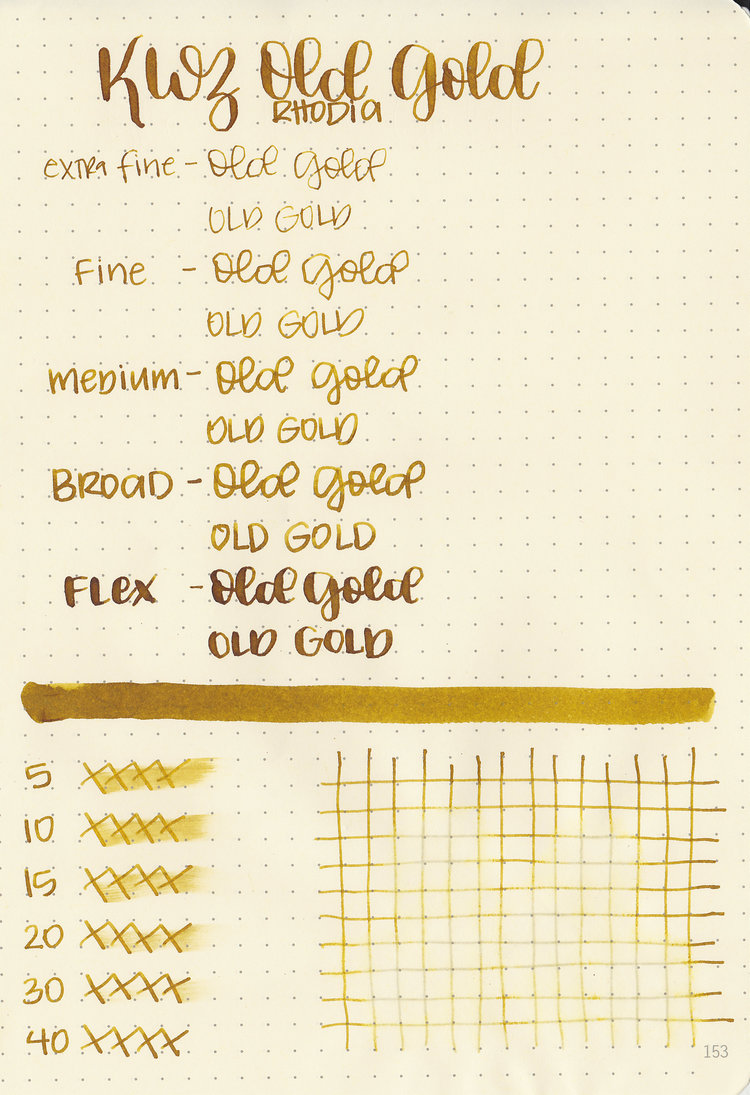 KWZ Old Gold
RHODIA
extra fine - Old Gold
OLD GOLD
Fine - Old Gold
OLD GOLD
medium - Old Gold
OLD GOLD
BROAD - Old Gold
OLD GOLD
FLex - Old Gold
OLD GOLD
5 XXXX
10 XXXX
15 XXXX
20 XXXX
30 XXXX
40 XXXX
153